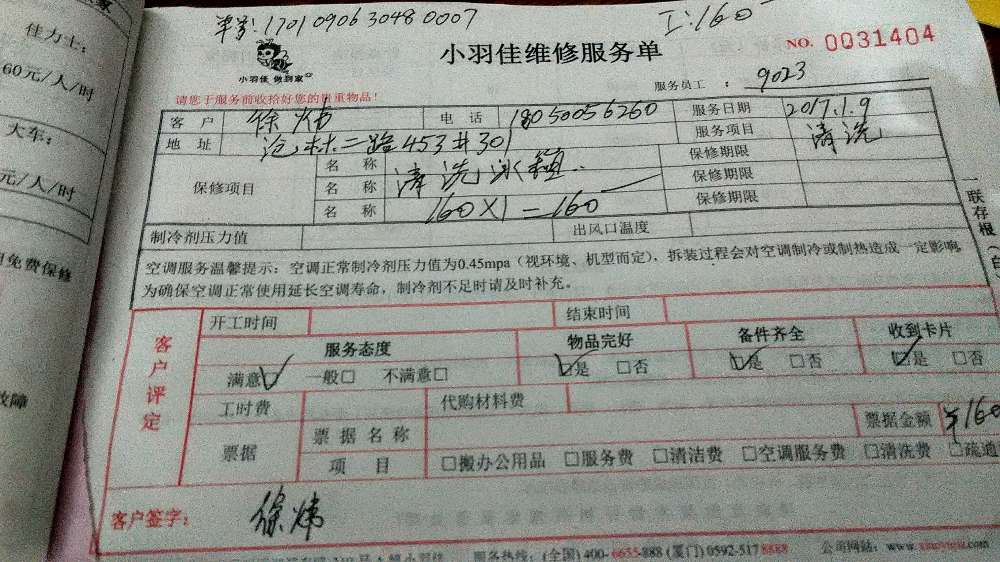 单号:17010906304800007
工:160
佳力士:
60元/人/时
大车:
元/人/时
免费保修
故障
小羽佳 做到家
小羽佳维修服务单
NO. 0031404
请您于服务前收拾好您的贵重物品!
服务员工: 9023
客户 徐炜 电话 18050056260 服务日期 2017.1.9
地址 沧林二路453#301 服务项目 清洗
保修项目 名称 清洗冰箱 保修期限
名称 160X1=160 保修期限
名称 保修期限
制冷剂压力值 出风口温度
空调服务温馨提示:空调正常制冷剂压力值为0.45mpa(视环境、机型而定),拆装过程会对空调制冷或制热造成一定影响
为确保空调正常使用延长空调寿命,制冷剂不足时请及时补充。
一联存根(白
客户评定
开工时间 结束时间
服务态度 物品完好 备件齐全 收到卡片
满意☑ 一般□ 不满意□ ☑是 □否 ☑是 □否 ☑是 □否
工时费 代购材料费
票据 票据名称 票据金额 ¥160
项目 □搬办公用品 □服务费 □清洁费 □空调服务费 □清洗费 □疏通
客户签字: 徐炜
服务热线:(全国)400-6655-888 (厦门)0592-5178888 公司网站:www.xiaoyujia.com